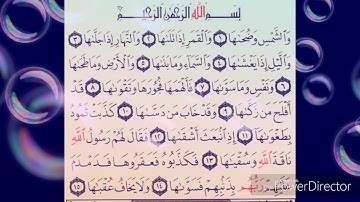 بِسْمِ اللَّهِ الرَّحْمَٰنِ الرَّحِيمِ
وَالشَّمْسِ وَضُحَاهَا ١ وَالْقَمَرِ إِذَا تَلَاهَا ٢ وَالنَّهَارِ إِذَا جَلَّاهَا ٣
وَاللَّيْلِ إِذَا يَغْشَاهَا ٤ وَالسَّمَاءِ وَمَا بَنَاهَا ٥ وَالْأَرْضِ وَمَا طَحَاهَا
٦ وَنَفْسٍ وَمَا سَوَّاهَا ٧ فَأَلْهَمَهَا فُجُورَهَا وَتَقْوَاهَا ٨ قَدْ
أَفْلَحَ مَن زَكَّاهَا ٩ وَقَدْ خَابَ مَن دَسَّاهَا ١٠ كَذَّبَتْ ثَمُودُ
بِطَغْوَاهَا ١١ إِذِ انبَعَثَ أَشْقَاهَا ١٢ فَقَالَ لَهُمْ رَسُولُ اللَّهِ
نَاقَةَ اللَّهِ وَسُقْيَاهَا ١٣ فَكَذَّبُوهُ فَعَقَرُوهَا فَدَمْدَمَ
عَلَيْهِمْ رَبُّهُم بِذَنبِهِمْ فَسَوَّاهَا ١٤ وَلَا يَخَافُ عُقْبَاهَا ١٥
PowerDirector